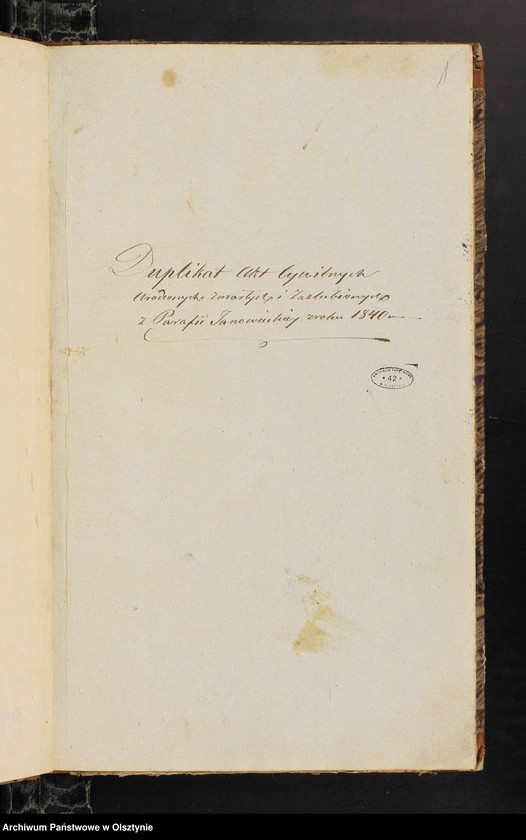 1
Duplikat Akt Cywilnych
Urodzonych zmarłych i Zaslubionych
z Parafii Janowieckiej z roku 1840
42
Archiwum Państwowe w Olsztynie